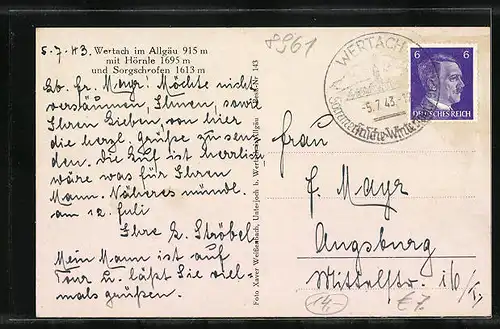 5.7.43. Wertach im Allgäu 915 m
mit Hörnle 1695 m
und Sorgschrofen 1613 m
Lb. Fr. Mayr! Möchte nicht
versäumen, Ihnen, sowie
Ihren Lieben, von hier
die herzl. Grüße zu sen-
den. Die Luft ist herrlich,
wäre was für Ihren
Mann. Näheres mündl.
am 12. Juli
Ihre Ströbel
Mein Mann ist auf
Tour u. läßt Sie viel-
mals grüßen.
Foto Xaver Weißenbach, Unterjoch b. Wertach/Allgäu
Nr. 143
8961
WERTACH
-5.7.43
6 6
DEUTSCHES REICH
Frau
F. Mayr
Augsburg
Mittelstr. 16/I
14.
€7.